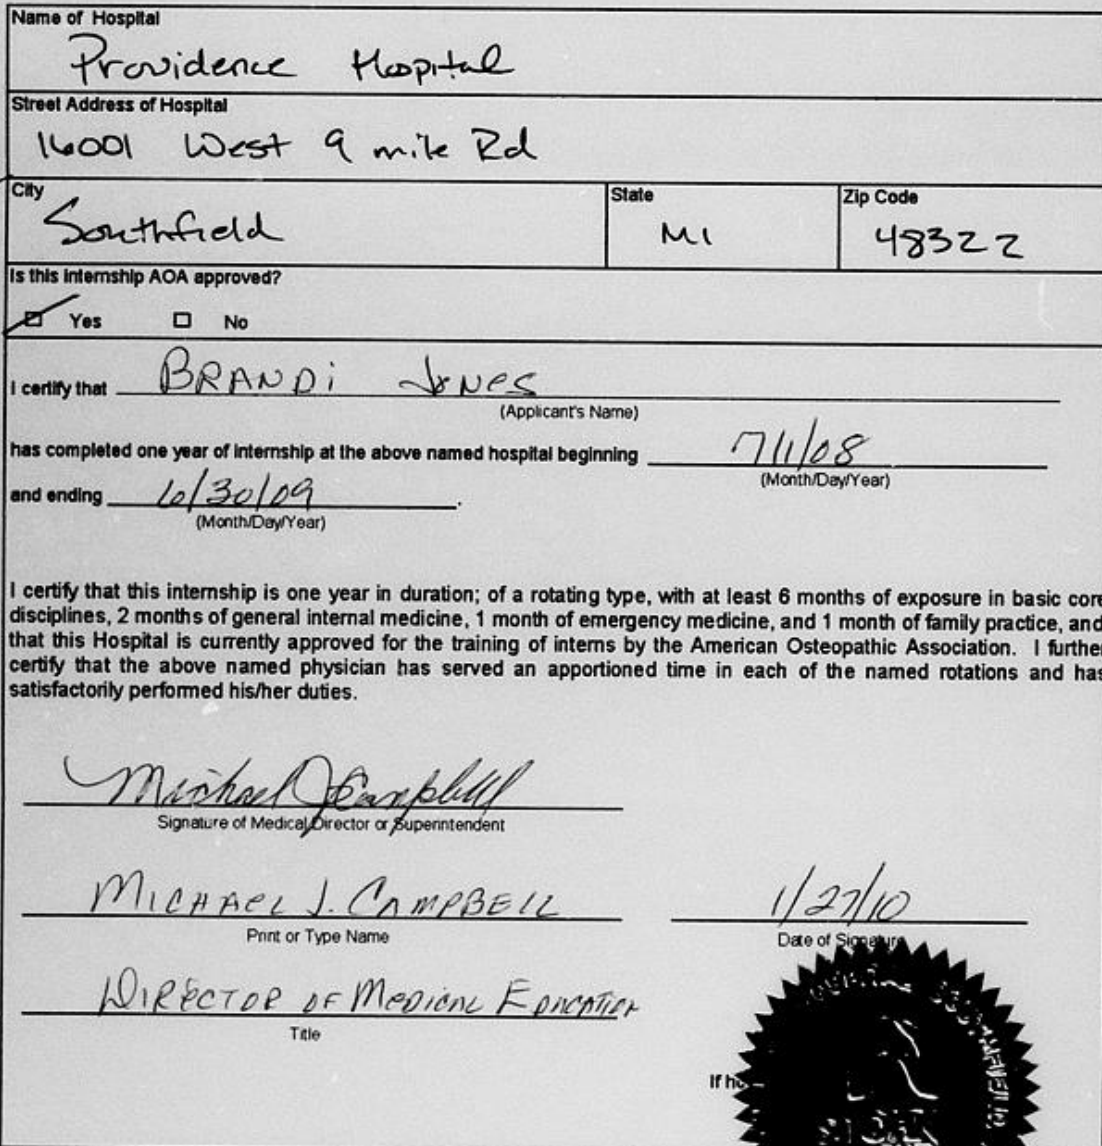 Name of Hospital
Providence Hospital
Street Address of Hospital
16001 West 9 mile Rd
City State Zip Code
Southfield MI 48322
Is this internship AOA approved?
Yes No
I certify that BRANDi JoNes
(Applicant's Name)
has completed one year of internship at the above named hospital beginning 7/1/08
(Month/Day/Year)
and ending 6/30/09.
(Month/Day/Year)
I certify that this internship is one year in duration; of a rotating type, with at least 6 months of exposure in basic core
disciplines, 2 months of general internal medicine, 1 month of emergency medicine, and 1 month of family practice, and
that this Hospital is currently approved for the training of interns by the American Osteopathic Association. I further
certify that the above named physician has served an apportioned time in each of the named rotations and has
satisfactorily performed his/her duties.
Michael J Campbell
Signature of Medical Director or Superintendent
MICHAEL J. CAMPBELL 1/27/10
Print or Type Name Date of Signature
DIRECTOR OF MEDICAL EDUCATION
Title
If